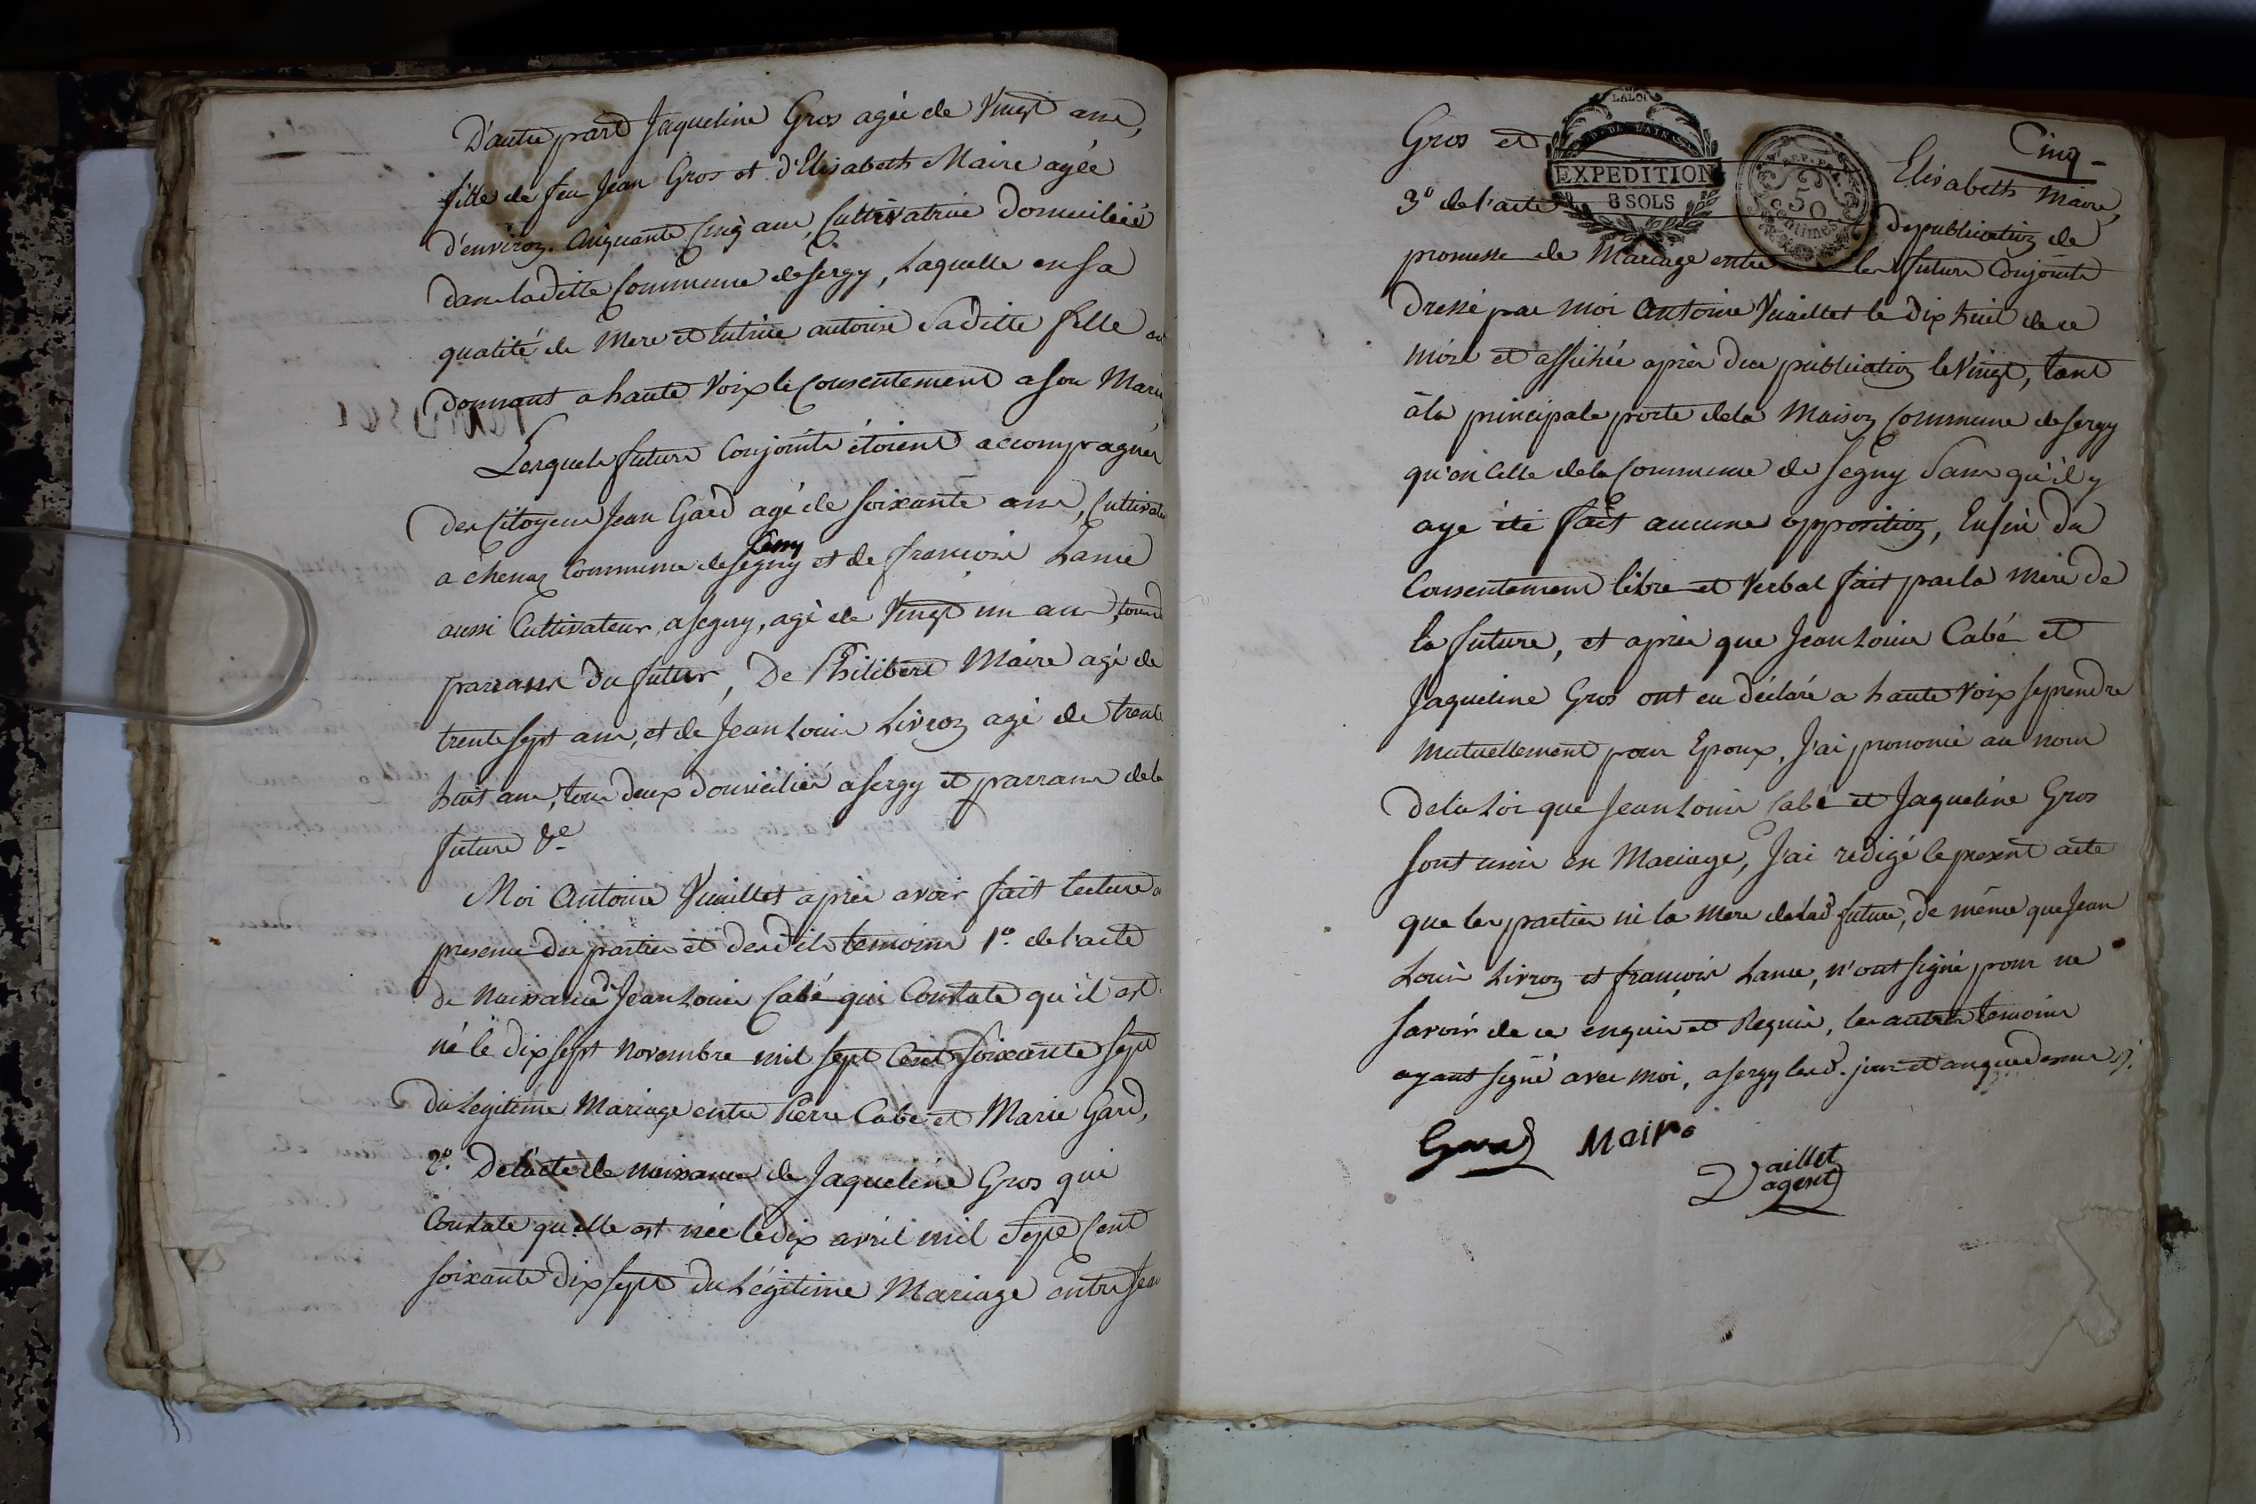 D'autre part Jaqueline Gros agée de Vingt ans,
fille de feu Jean Gros et d'Elisabeth Maire agée
d'environ Cinquante Cinq ans, Cultivatrice domiciliée
dans laditte Commune de Sergy, Laquelle en sa
qualité de Mere et tutrice autorise Saditte fille
donnant a haute Voix le Consentement a son Maria
Lesquels futurs Conjoints étoient accompagnés
des Citoyens Jean Gard agé de soixante ans, Cultivate
a chenaz Commune de Segny et de francois Lance
aussi Cultivateur a Segny, agé de Vingt un ans, tous d
parrans du futur, De Philibert Maire agé de
trente sept ans, et de Jean Louis Livroz agé de trente
huit ans, tous deux domiciliés a Sergy et parrans de la
future &c
Moi Antoine Vuaillet après avoir fait lecture
presence des parties et desdits temoins 1º. de l'acte
de Naissance de Jean Louis Cabé qui Constate qu'il est
né le dix sept novembre mil sept Cent Soixante sept
du Legitime Mariage entre Pierre Cabé et Marie Gard,
2º. De l'acte de naissance de Jaqueline Gros qui
Constate qu'elle est née le dix avril mil Sept Cent
soixante dix sept du Légitime Mariage entre Jean
Cinq
LA LOI
DEP. DE L'AIN
EXPEDITION
8 SOLS
REP. FRA
50
Centimes
Gros et Elisabeth Maire,
3º de l'acte de publication de
promesse de Mariage entre les futurs Conjoints
Dressé par moi Antoine Vuaillet le dix huit de ce
mois et affichée après due publication le Vingt, tant
à la principale porte de la Maison Commune de Sergy
qu'en Celle de la Commune de Segny Sans qu'il y
aye été fait aucune opposition, Enfin du
Consentement libre et Verbal fait par la mère de
la future, et après que Jean Louis Cabé et
Jaqueline Gros ont eu déclaré a haute Voix se prendre
Mutuellement pour Epoux, J'ai prononcé au nom
de la Loi que Jean Louis Cabé et Jaqueline Gros
sont unis en Mariage, J'ai redigé le present acte
que les parties ni la Mere de lad. future, de même que Jean
Louis Livroz et françois Lance, n'ont signé pour ne
savoir de ce enquis et Requis, les autres temoins
ayant signé avec moi, a Sergy lesd. jour et an que dessus
Gard Maire
Vaillet
agent